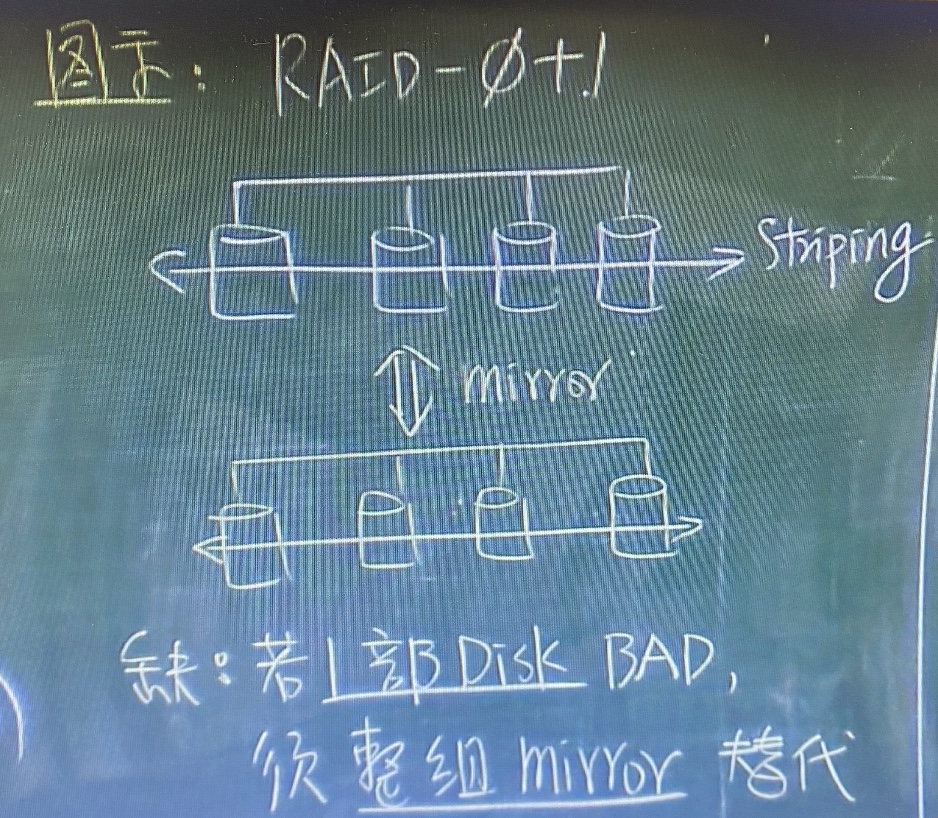 图示: RAID-0+1
Striping
mirror
缺:若1部Disk BAD,
须整组mirror替代